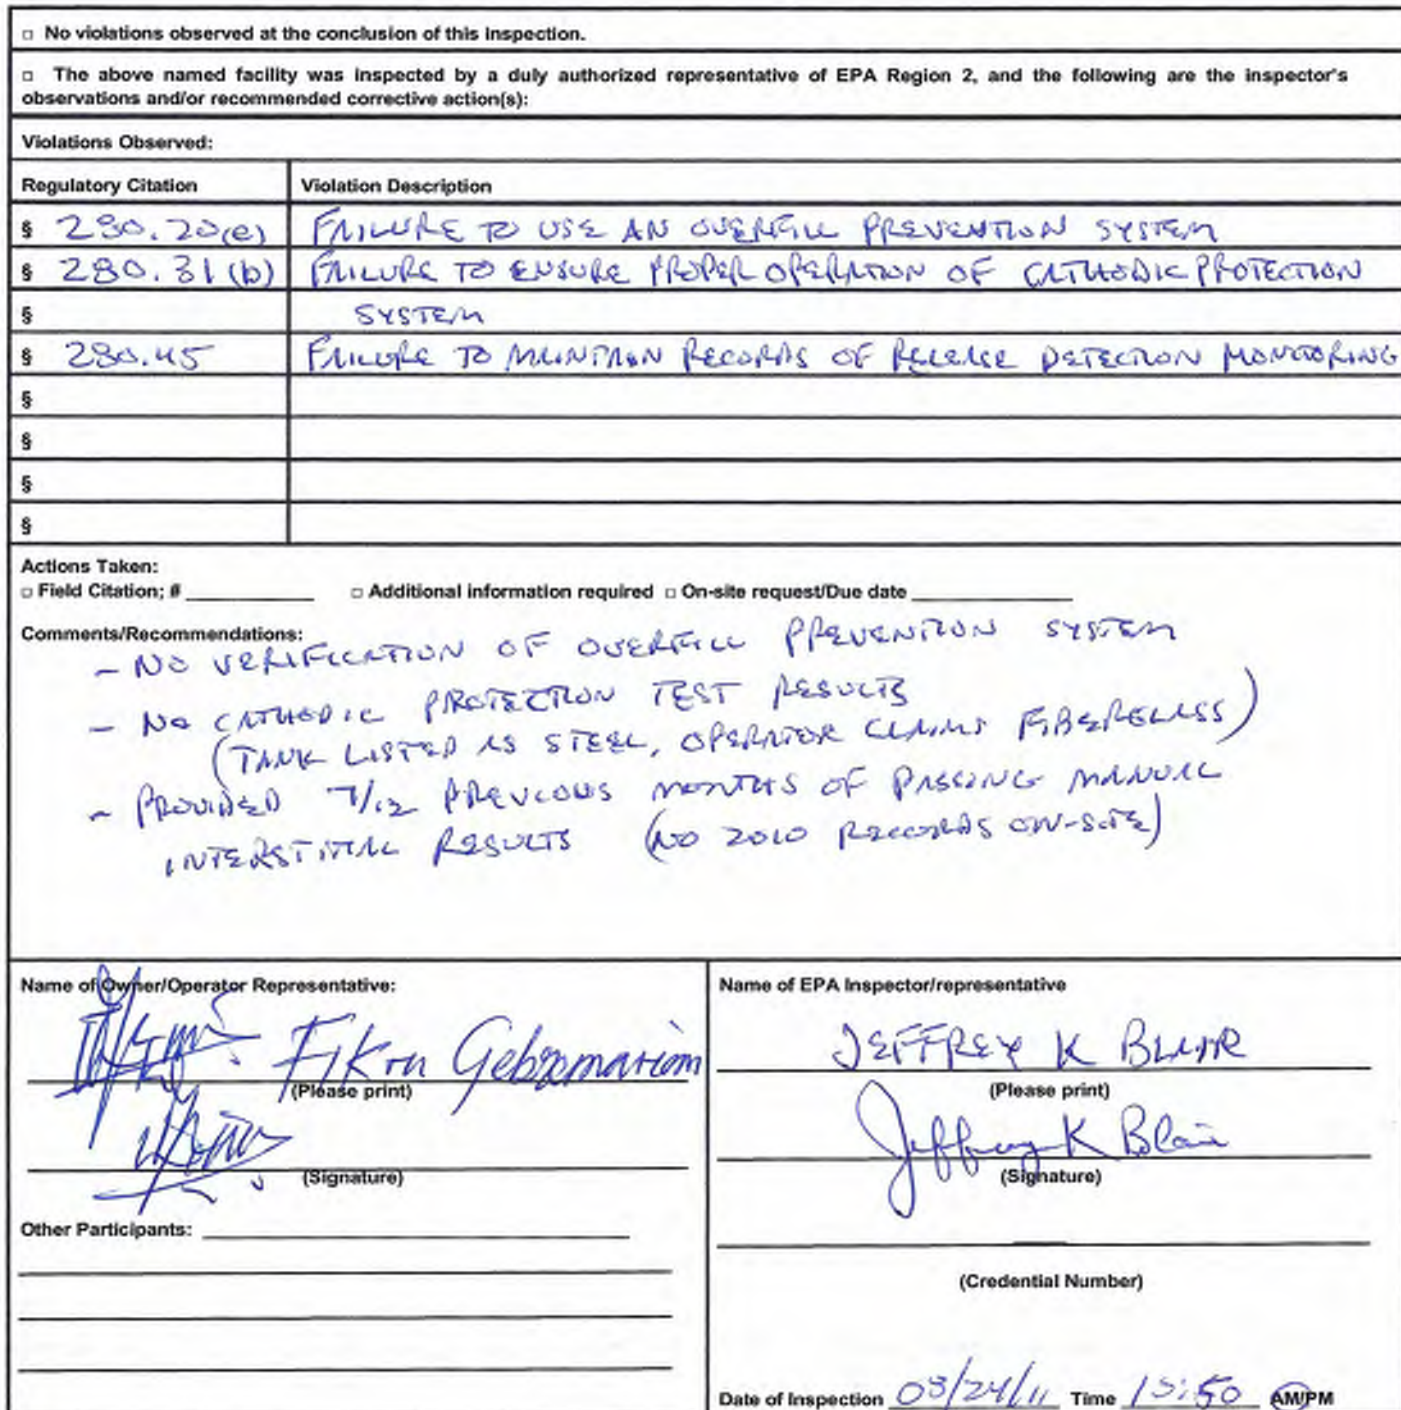 □ No violations observed at the conclusion of this inspection.
□ The above named facility was inspected by a duly authorized representative of EPA Region 2, and the following are the inspector's
observations and/or recommended corrective action(s):
Violations Observed:
Regulatory Citation Violation Description
§ 280.20(e) FAILURE TO USE AN OVERFILL PREVENTION SYSTEM
§ 280.31(b) FAILURE TO ENSURE PROPER OPERATION OF CATHODIC PROTECTION
§ SYSTEM
§ 280.45 FAILURE TO MAINTAIN RECORDS OF RELEASE DETECTION MONITORING
§
§
§
§
Actions Taken:
□ Field Citation; # □ Additional information required □ On-site request/Due date
Comments/Recommendations:
- NO VERIFICATION OF OVERFILL PREVENTION SYSTEM
- NO CATHODIC PROTECTION TEST RESULTS
(TANK LISTED AS STEEL, OPERATOR CLAIMS FIBERGLASS)
- PROVIDED 7/12 PREVIOUS MONTHS OF PASSING MANUAL
INTERSTITIAL RESULTS (NO 2010 RECORDS ON-SITE)
Name of Owner/Operator Representative:
Fikru Gebremariam
(Please print)
(Signature)
Other Participants:
Name of EPA Inspector/representative
JEFFREY K BLAIR
(Please print)
Jeffrey K Blair
(Signature)
(Credential Number)
Date of Inspection Time AM/PM